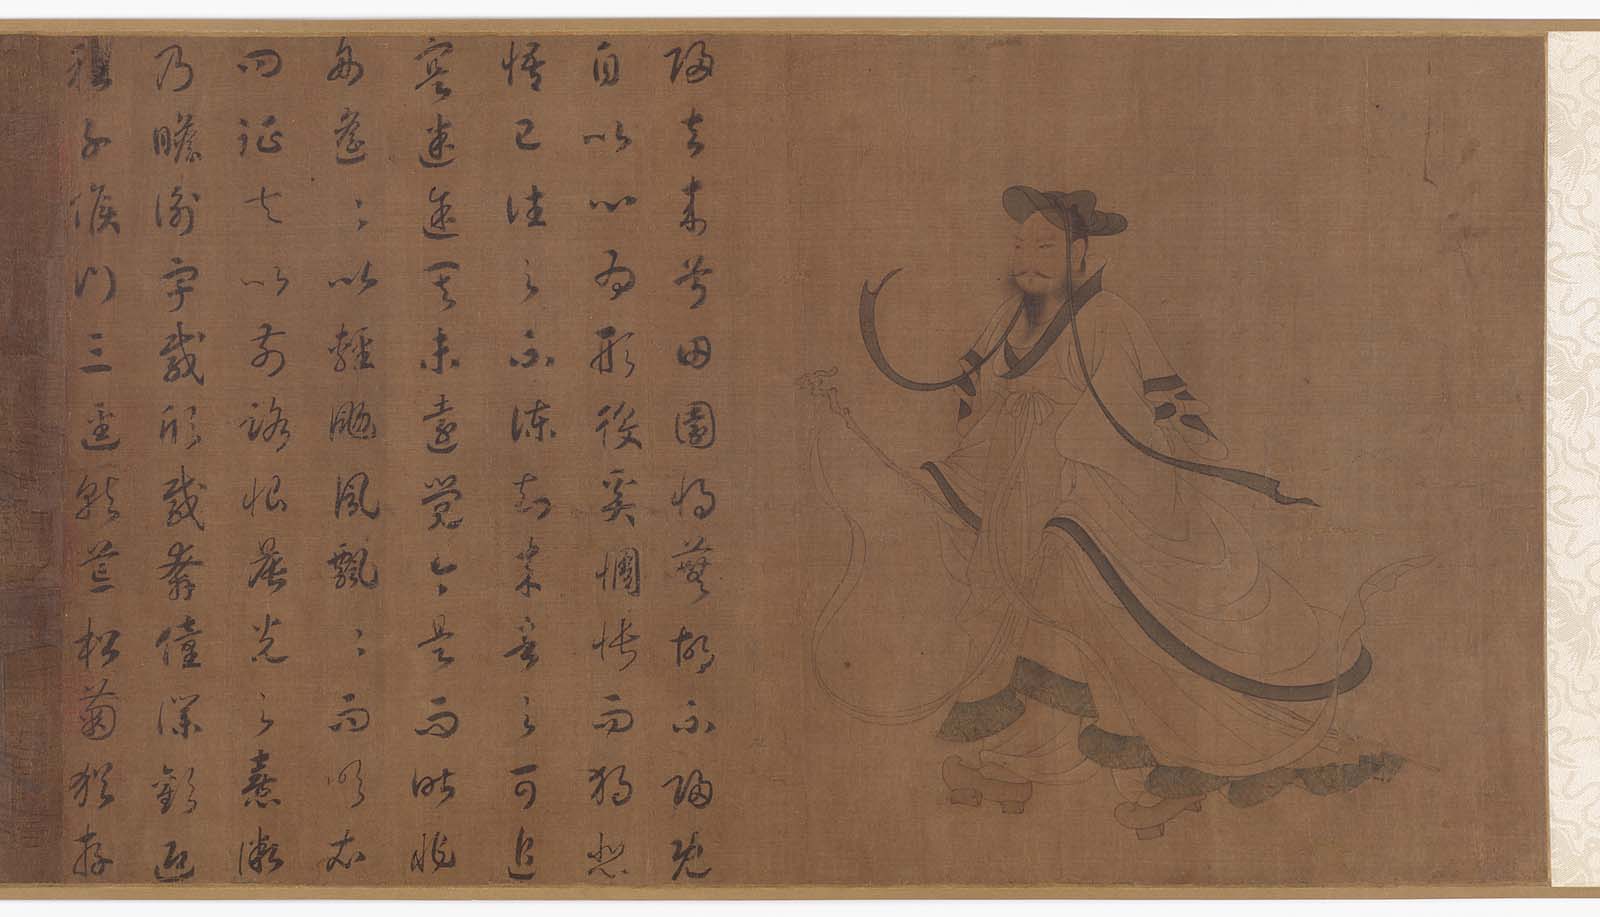 歸去來兮田園將蕪胡不歸既
自以心為形役奚惆悵而獨悲
悟已往之不諫知來者之可追
寔迷途其未遠覺今是而昨非
舟遙〻以輕颺風飄〻而吹衣
問征夫以前路恨晨光之熹微
乃瞻衡宇載欣載奔僮僕歡迎
稚子候門三逕就荒松菊猶存